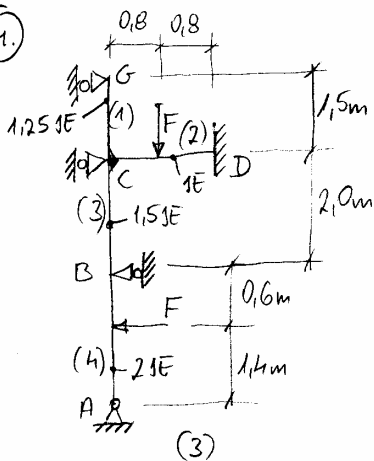 1.
0,8 0,8
G
1,25JE
(1)
F
(2)
1,5m
C
1E
D
(3)
1,5JE
2,0m
B
0,6m
F
(4)
2JE
1,4m
A
(3)